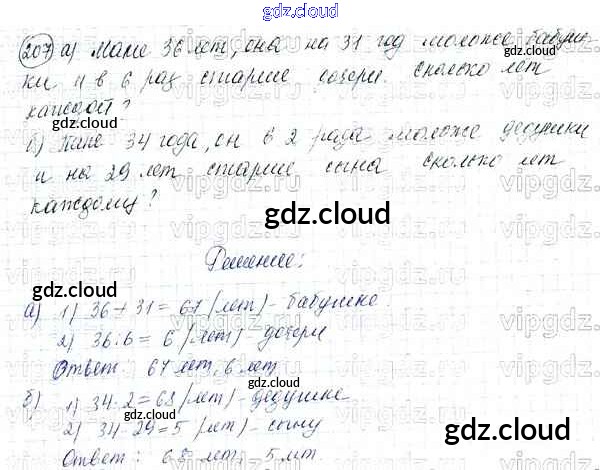 gdz.cloud
gdz.cloud
207) а) Маме 36 лет, она на 31 год моложе бабуш-
ки и в 6 раз старше дочери. Сколько лет
каждой?
gdz.cloud
б) Папе 34 года, он в 2 раза моложе дедушки
и на 29 лет старше сына сколько лет
каждому?
gdz.cloud
Решение:
gdz.cloud
а) 1) 36+31=67 (лет) - бабушке
2) 36:6= 6 (лет) - дочери
Ответ: 67 лет, 6 лет
б) 1) 34·2=68 (лет) - дедушке
2) 34-29=5 (лет) - сыну
gdz.cloud
Ответ: 68 лет, 5 лет.
gdz.cloud